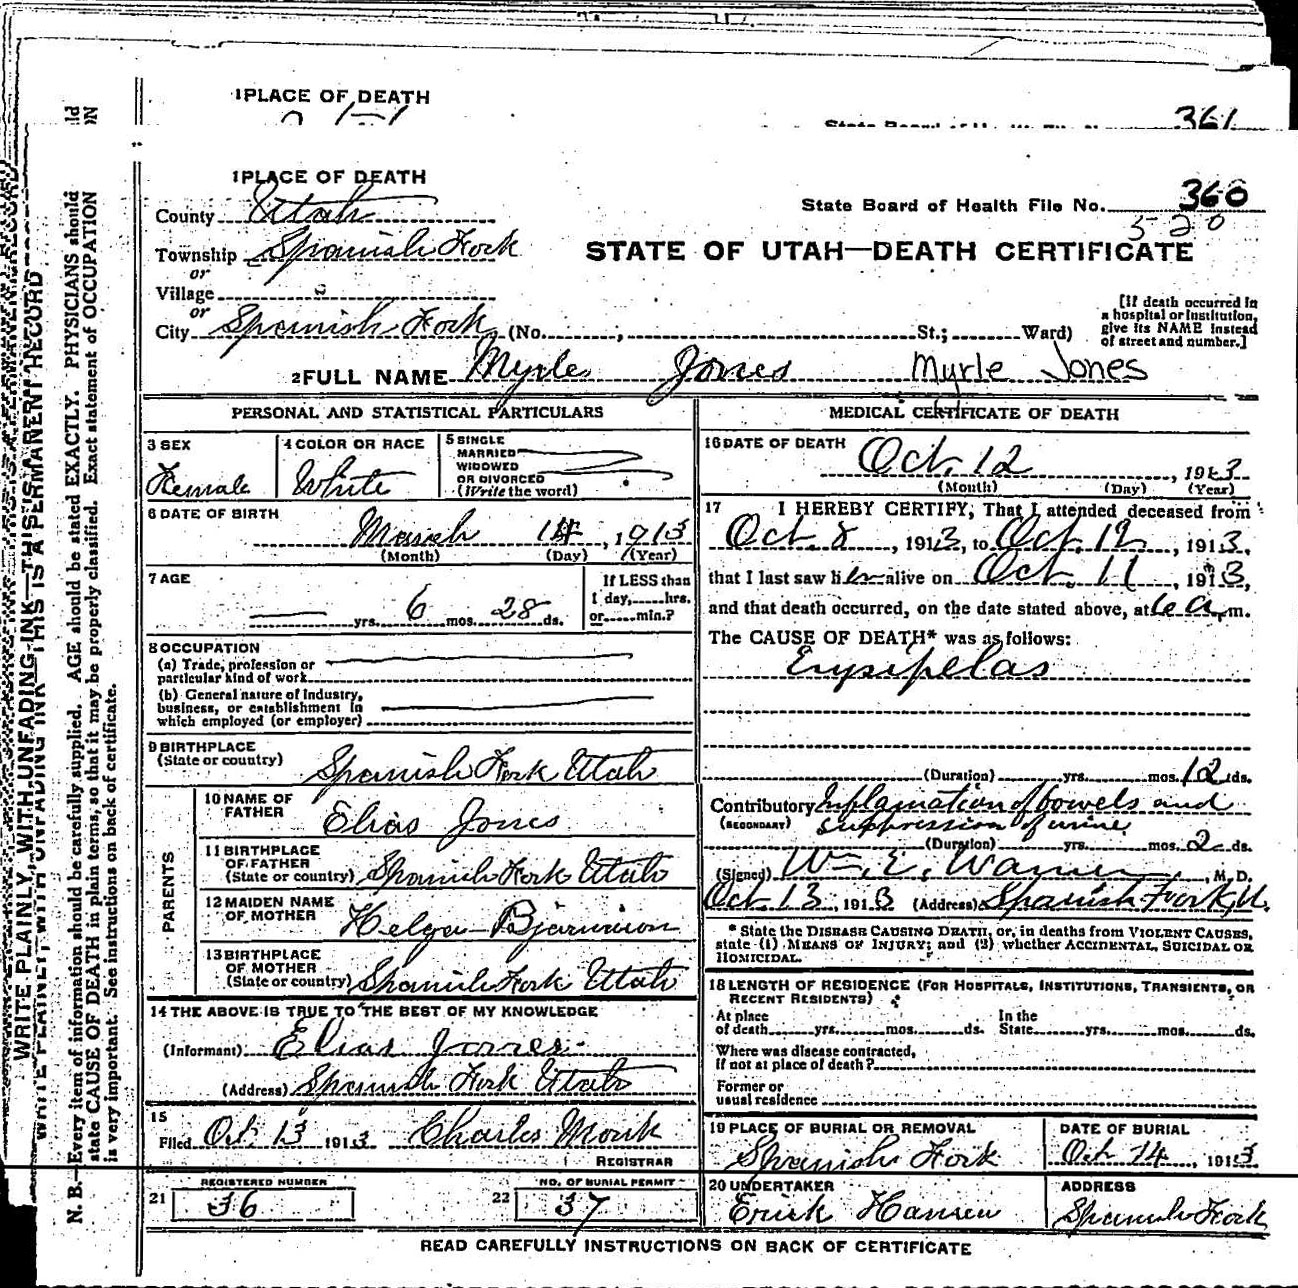 1 PLACE OF DEATH
361
1 PLACE OF DEATH
State Board of Health File No. 360
520
County Utah
Township Spanish Fork
or
Village
or
City Spanish Fork (No. , St.; Ward)
STATE OF UTAH—DEATH CERTIFICATE
[If death occurred in
a hospital or institution,
give its NAME instead
of street and number.]
2 FULL NAME Myrle Jones Myrle Jones
PERSONAL AND STATISTICAL PARTICULARS
3 SEX
Female
4 COLOR OR RACE
White
5 SINGLE
MARRIED
WIDOWED
OR DIVORCED
(Write the word)
6 DATE OF BIRTH
March 14, 1913
(Month) (Day) (Year)
7 AGE
yrs. 6 mos. 28 ds.
If LESS than
1 day, hrs.
or min.?
8 OCCUPATION
(a) Trade, profession or
particular kind of work
(b) General nature of industry,
business, or establishment in
which employed (or employer)
9 BIRTHPLACE
(State or country) Spanish Fork Utah
PARENTS
10 NAME OF
FATHER Elias Jones
11 BIRTHPLACE
OF FATHER
(State or country) Spanish Fork Utah
12 MAIDEN NAME
OF MOTHER Helga
13 BIRTHPLACE
OF MOTHER
(State or country) Spanish Fork Utah
14 THE ABOVE IS TRUE TO THE BEST OF MY KNOWLEDGE
(Informant) Elias Jones
(Address) Spanish Fork Utah
15
Filed Oct. 13 1913 Charles Monk
REGISTRAR
21 REGISTERED NUMBER
36
22 NO. OF BURIAL PERMIT
37
MEDICAL CERTIFICATE OF DEATH
16 DATE OF DEATH
Oct. 12, 1913
(Month) (Day) (Year)
17 I HEREBY CERTIFY, That I attended deceased from
Oct. 8, 1913, to Oct. 12, 1913,
that I last saw her alive on Oct. 11, 1913,
and that death occurred, on the date stated above, at 6 a. m.
The CAUSE OF DEATH* was as follows:
Erysipelas
(Duration) yrs. mos. 12 ds.
Contributory Inflamation of bowels and
(SECONDARY) suppression of urine
(Duration) yrs. mos. 2 ds.
(Signed) Wm. E. Warner, M. D.
Oct 13, 1913 (Address) Spanish Fork, U.
* State the DISEASE CAUSING DEATH, or, in deaths from VIOLENT CAUSES,
state (1) MEANS OF INJURY; and (2) whether ACCIDENTAL, SUICIDAL OR
HOMICIDAL.
18 LENGTH OF RESIDENCE (FOR HOSPITALS, INSTITUTIONS, TRANSIENTS, OR
RECENT RESIDENTS)
At place
of death yrs. mos. ds.
In the
State yrs. mos. ds.
Where was disease contracted,
if not at place of death?
Former or
usual residence
19 PLACE OF BURIAL OR REMOVAL
Spanish Fork
DATE OF BURIAL
Oct 14, 1913
20 UNDERTAKER
Erick Hansen
ADDRESS
Spanish Fork
READ CAREFULLY INSTRUCTIONS ON BACK OF CERTIFICATE
WRITE PLAINLY, WITH UNFADING INK—THIS IS A PERMANENT RECORD
N. B.—Every item of information should be carefully supplied. AGE should be stated EXACTLY. PHYSICIANS should
state CAUSE OF DEATH in plain terms, so that it may be properly classified. Exact statement of OCCUPATION
is very important. See instructions on back of certificate.